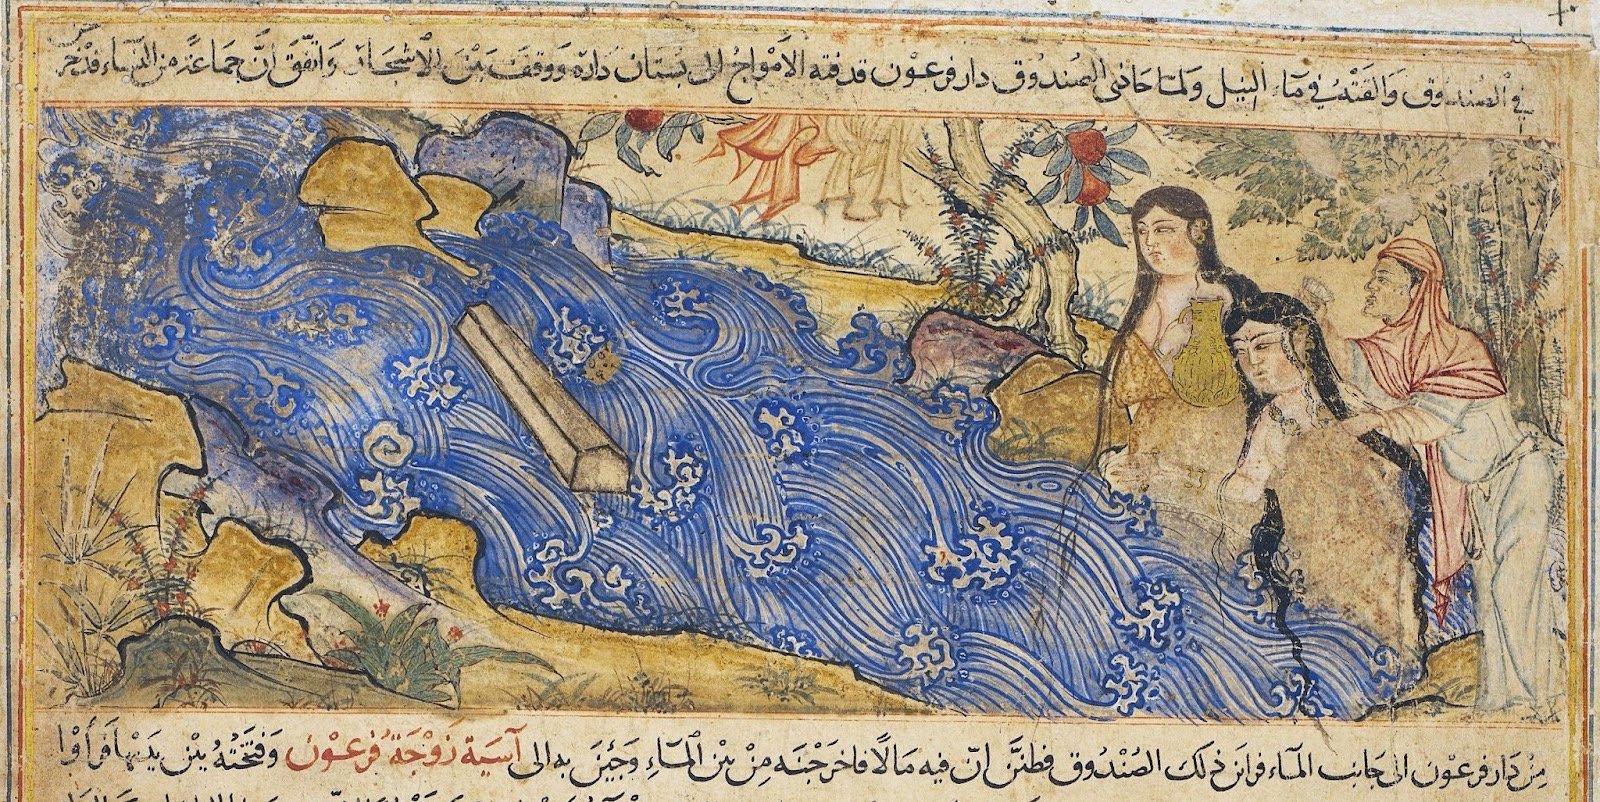 في الصندوق وَالقَتْهُ في مَاء النيل ولما حَاذى الصندوق دار فرعون قدفته الأمواج الى بستان داره ووقف بَيْنَ الاشجَار وَاتفقَ انَّ جمَاعَةً من النسَاء قد خرجن
مِن دَار فرعَون الى جَانب المآء فرأين ذلك الصُنْدُوق فظنَنَّ انّ فيه مَالًا فاخرَجْنَه مِنْ بَيْن المآءِ وَجَئِنَ به الى آسيَة زَوْجَةُ فرعَوْن وَفتحْتهُ بَيْن يَدَيْهَا فَرأوْا